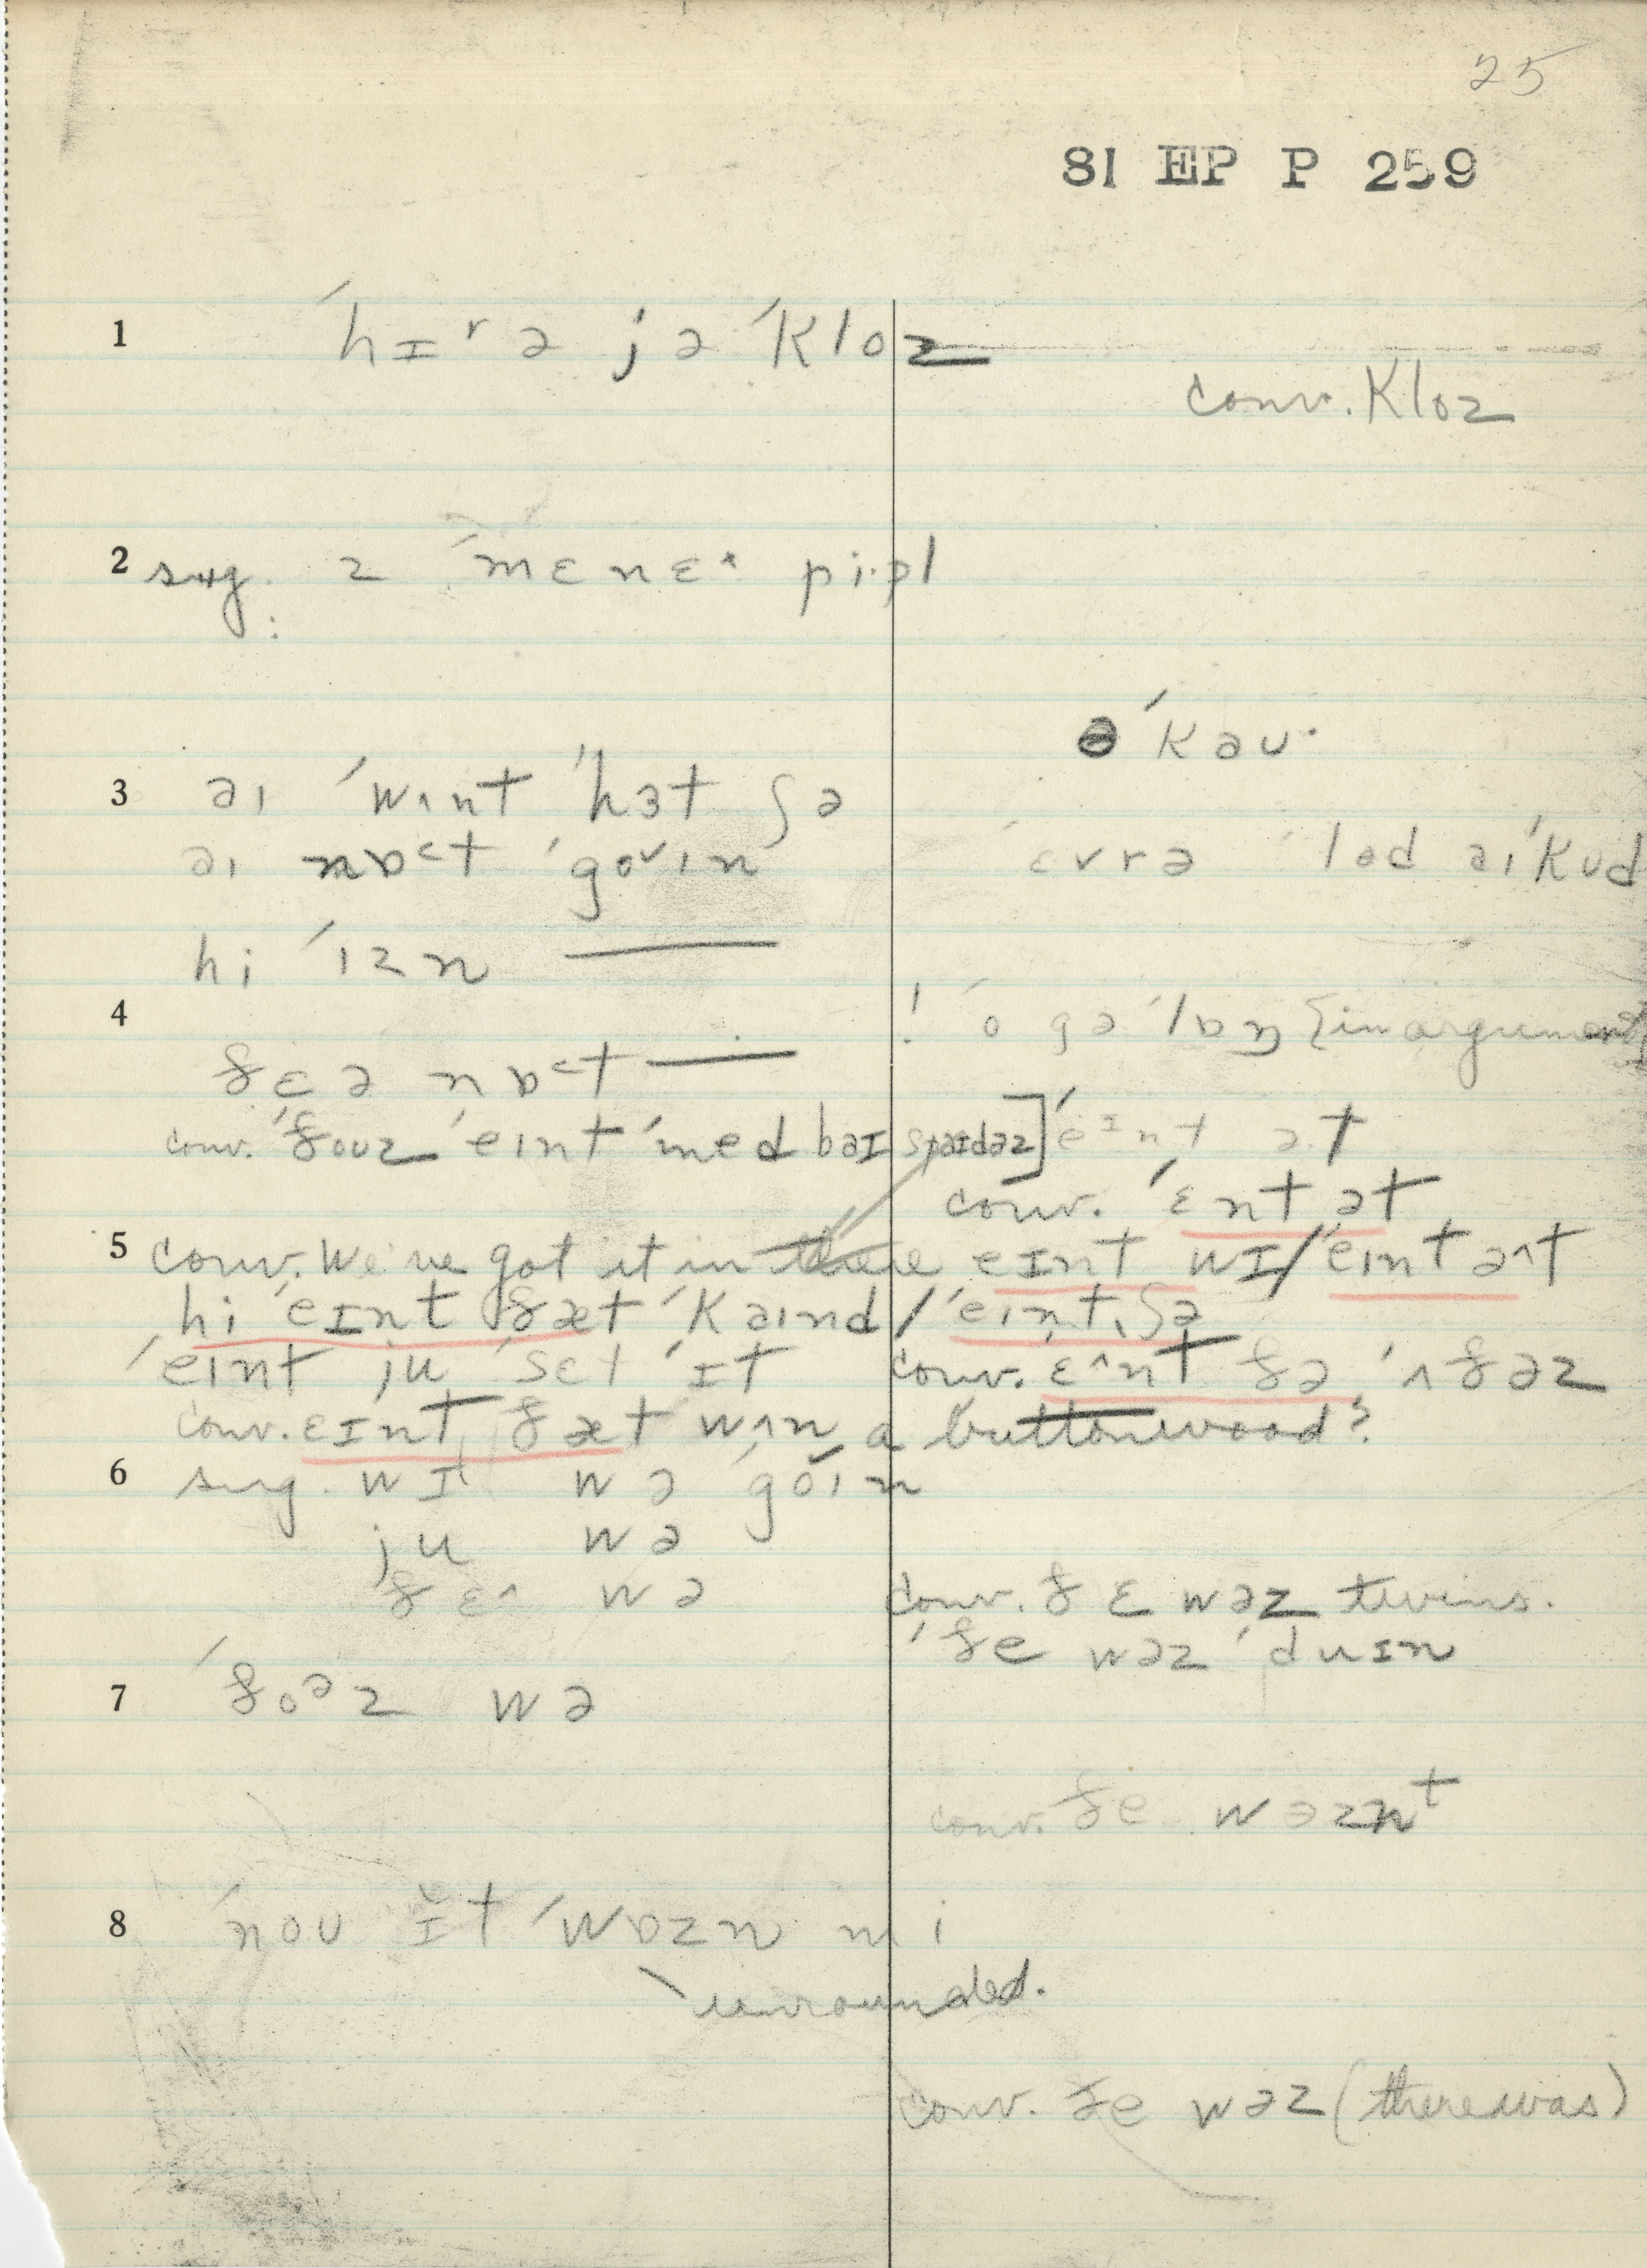 25
81 EP P 259
1 ˈhɪʳə jə ˈkloz
conv. kloz
2 sug. z ˈmɛnɛ˄ pi·pl
ə ˈkəu·
3 əɪ ˈwʌnt ˈhɜt ʃə
əɪ nɒ˂t ˈgoᵛɪn
ˈɛvrə ˈlod əɪ ˈkud
hi ˈɪzn ——
4 ! ˈo gə ˈlɒŋ {in argument}
ðɛə nɒ˂t ——
conv. ˈðouz ˈeɪnt ˈmed baɪ spaɪdəz] ˈeɪnt ət
conv. ˈɛnt ət
5 conv. We've got it in eɪnt wɪ/ˈeɪnt ə˄t
hi ˈeɪnt ðæt ˈkaɪnd / ˈeɪnt ʃə
ˈeɪnt ju ˈsɛt ˈɪt conv. ɛ˄nt ðə ˈʌðəz
conv. ɛɪnt ðæt wʌn a buttonwood?
6 sug. wɪ wə ˈgoɪn
ju wə
ðɛ˄ wə conv. ðɛ wəz twins.
ˈðe wəz ˈduɪn
7 ˈðoᵊz wə
conv. ðe wəznᵗ
8 ˈnou ɪ̆t ˈwɒzn mi
unrounded.
conv. ðe wəz (there was)